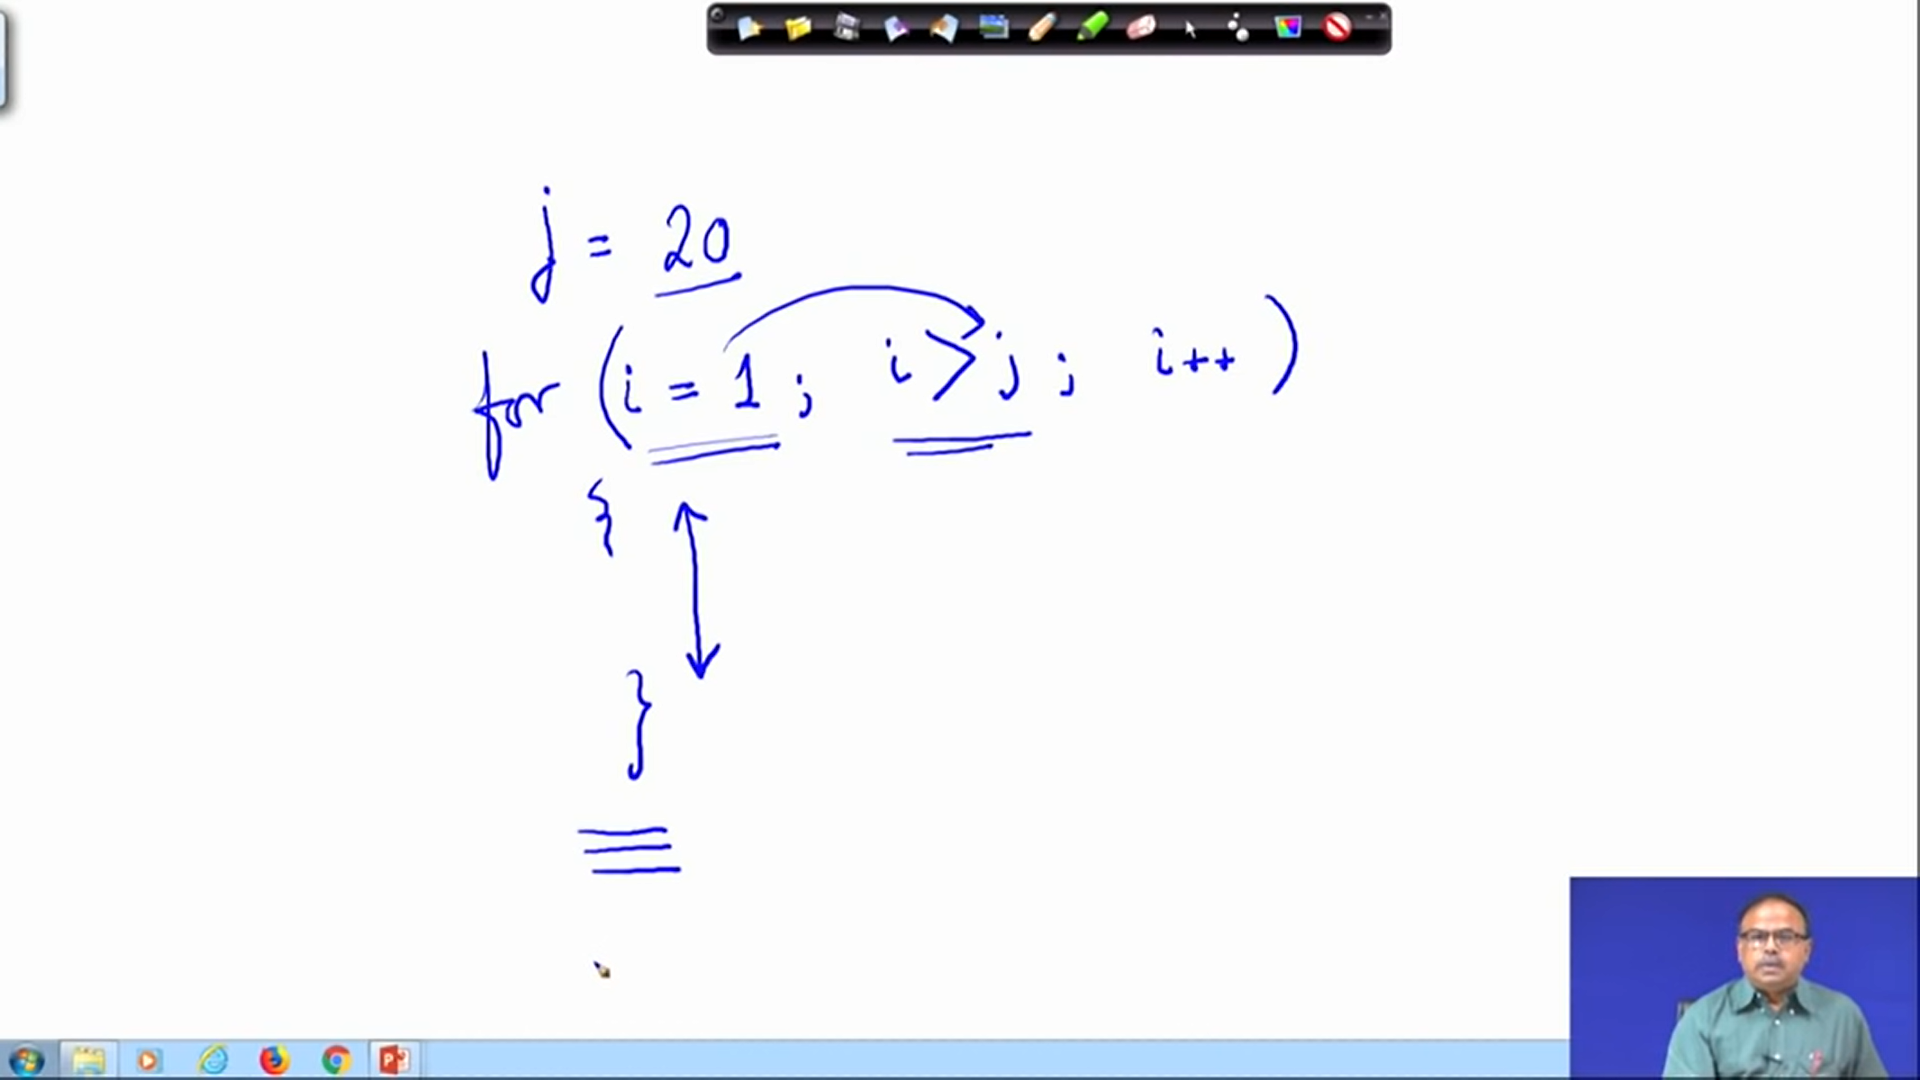 j = 20
for (i = 1; i > j; i++)
{
}